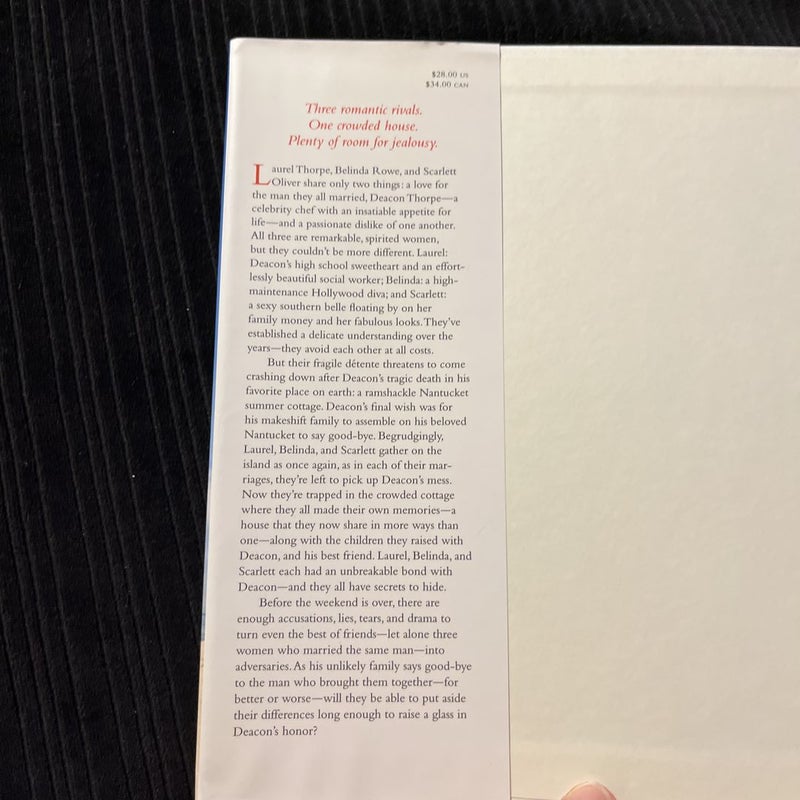 $28.00 US
$34.00 CAN
Three romantic rivals.
One crowded house.
Plenty of room for jealousy.
Laurel Thorpe, Belinda Rowe, and Scarlett
Oliver share only two things: a love for
the man they all married, Deacon Thorpe—a
celebrity chef with an insatiable appetite for
life—and a passionate dislike of one another.
All three are remarkable, spirited women,
but they couldn't be more different. Laurel:
Deacon's high school sweetheart and an effort-
lessly beautiful social worker; Belinda: a high-
maintenance Hollywood diva; and Scarlett:
a sexy southern belle floating by on her
family money and her fabulous looks. They've
established a delicate understanding over the
years—they avoid each other at all costs.
But their fragile détente threatens to come
crashing down after Deacon's tragic death in his
favorite place on earth: a ramshackle Nantucket
summer cottage. Deacon's final wish was for
his makeshift family to assemble on his beloved
Nantucket to say good-bye. Begrudgingly,
Laurel, Belinda, and Scarlett gather on the
island as once again, as in each of their mar-
riages, they're left to pick up Deacon's mess.
Now they're trapped in the crowded cottage
where they all made their own memories—a
house that they now share in more ways than
one—along with the children they raised with
Deacon, and his best friend. Laurel, Belinda, and
Scarlett each had an unbreakable bond with
Deacon—and they all have secrets to hide.
Before the weekend is over, there are
enough accusations, lies, tears, and drama to
turn even the best of friends—let alone three
women who married the same man—into
adversaries. As his unlikely family says good-bye
to the man who brought them together—for
better or worse—will they be able to put aside
their differences long enough to raise a glass in
Deacon's honor?